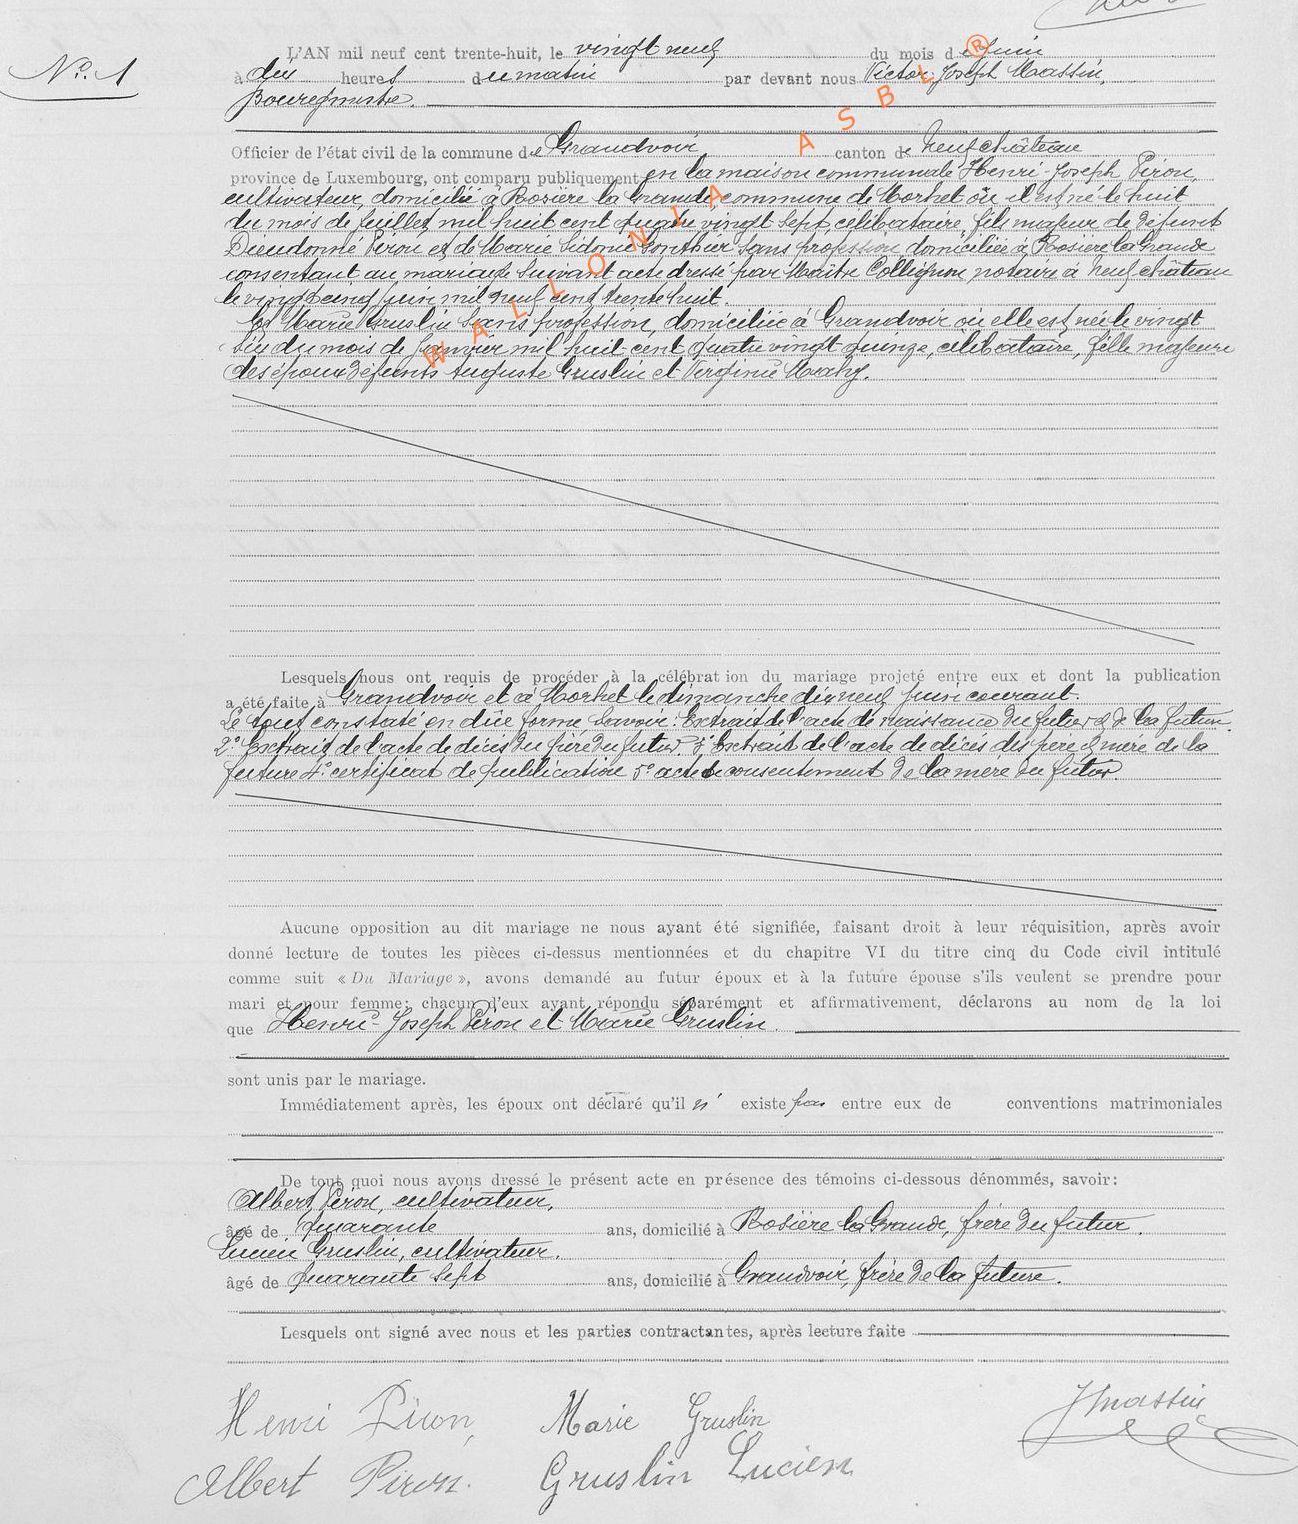 N° 1
L'AN mil neuf cent trente-huit, le vingt neuf du mois de juin
à dix heures du matin par devant nous Victor Joseph Massin,
Bourgmestre.
Officier de l'état civil de la commune de Grandvoir canton de Neufchâteau
province de Luxembourg, ont comparu publiquement en la maison communale Henri-Joseph Piron,
cultivateur, domicilié à Rosière la Grande commune de Morhet où il est né le huit
du mois de juillet mil huit cent quatre vingt sept célibataire, fils majeur de défunt
Dieudonné Piron et de Marie Sidonie Gonthier sans profession domiciliée à Rosière la Grande
consentant au mariage suivant acte dressé par Maître Collignon notaire à Neufchâteau
le vingt cinq juin mil neuf cent trente huit.
Et Marie Gruslin sans profession, domiciliée à Grandvoir où elle est née le vingt
six du mois de janvier mil huit cent quatre vingt quinze, célibataire, fille majeure
des époux défunts Auguste Gruslin et Virginie Mathy.
Lesquels nous ont requis de procéder à la célébration du mariage projeté entre eux et dont la publication
a été faite à Grandvoir et à Morhet le dimanche dix neuf juin courant.
Le tout constaté en dûe forme savoir: Extrait de l'acte de naissance du futur & de la future
2° Extrait de l'acte de décès du père du futur 3° Extrait de l'acte de décès des père & mère de la
future 4° certificat de publication 5° acte de consentement de la mère du futur.
Aucune opposition au dit mariage ne nous ayant été signifiée, faisant droit à leur réquisition, après avoir
donné lecture de toutes les pièces ci-dessus mentionnées et du chapitre VI du titre cinq du Code civil intitulé
comme suit « Du Mariage », avons demandé au futur époux et à la future épouse s'ils veulent se prendre pour
mari et pour femme; chacun d'eux ayant répondu séparément et affirmativement, déclarons au nom de la loi
que Henri-Joseph Piron et Marie Gruslin.
sont unis par le mariage.
Immédiatement après, les époux ont déclaré qu'il n' existe pas entre eux de conventions matrimoniales
De tout quoi nous avons dressé le présent acte en présence des témoins ci-dessous dénommés, savoir:
Albert Piron, cultivateur,
âgé de quarante ans, domicilié à Rosière la Grande, frère du futur.
Lucien Gruslin, cultivateur.
âgé de quarante sept ans, domicilié à Grandvoir, frère de la future.
Lesquels ont signé avec nous et les parties contractantes, après lecture faite
Henri Piron, Marie Gruslin JMassin
Albert Piron. Gruslin Lucien
WALLONIA ASBL ®